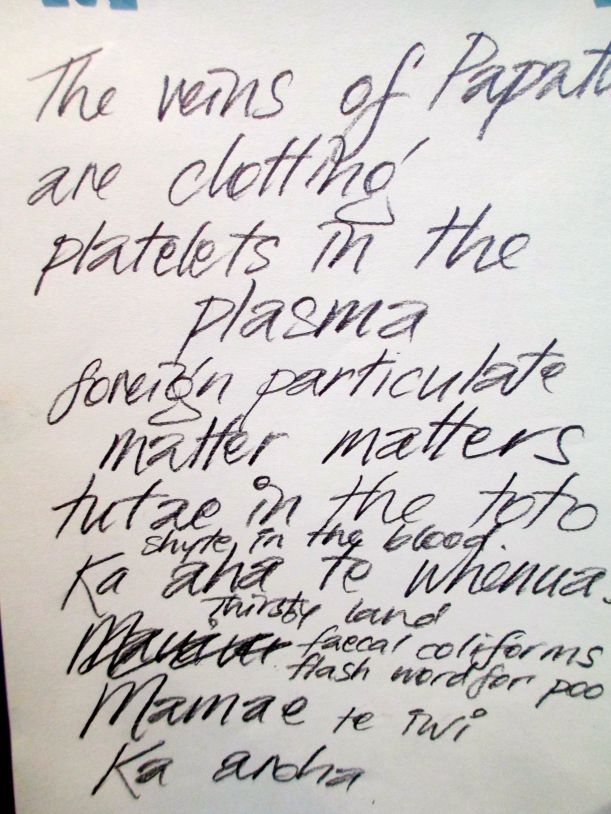 The veins of Papatu
are clotting
platelets in the
plasma
foreign particulate
matter matters
tutae in the toto
shyte in the blood
Ka aha te whenua
thirsty land
faecal coliforms
flash word for poo
Mamae te iwi
Ka aroha